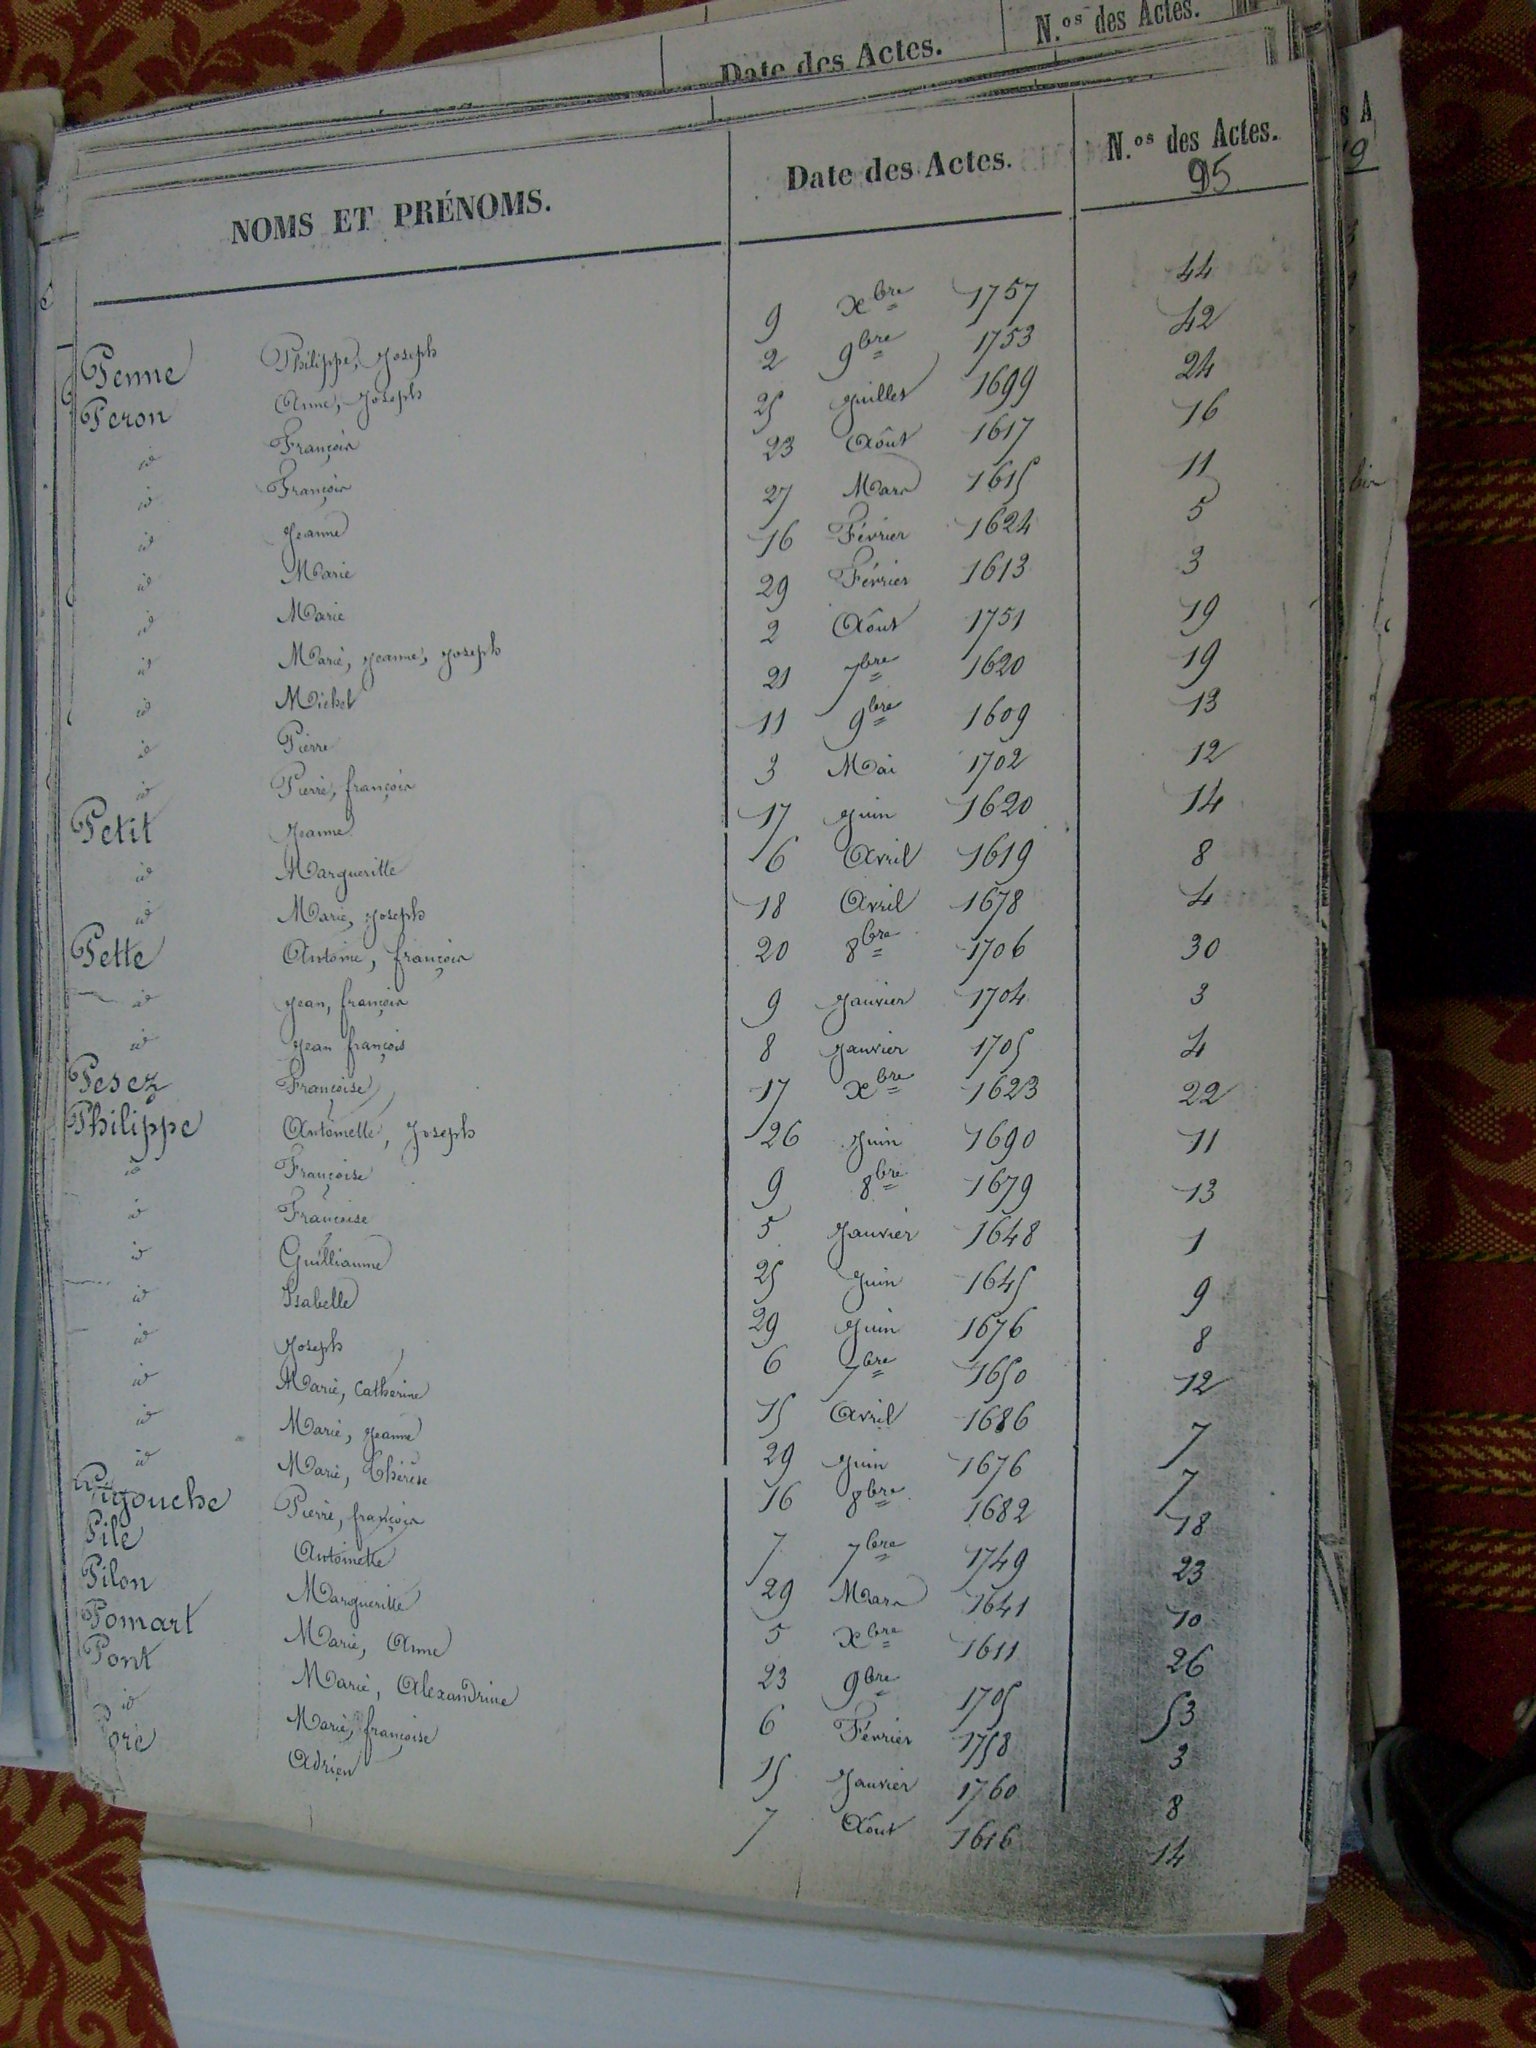 Date des Actes. N.os des Actes.
NOMS ET PRÉNOMS. Date des Actes. N.os des Actes.
95
Penne Philippe, Joseph 9 Xbre 1757 44
Peron Anne, Joseph 2 9bre 1753 42
id François 25 Juillet 1699 24
id François 23 Août 1617 16
id Jeanne 27 Mars 1615 11
id Marie 16 Février 1624 5
id Marie 29 Février 1613 3
id Marie, Jeanne, Joseph 2 Août 1751 19
id Michel 21 7bre 1620 19
id Pierre 11 9bre 1609 13
id Pierre, françois 3 Mai 1702 12
Petit Jeanne 17 Juin 1620 14
id Margueritte 6 Avril 1619 8
id Marie, Joseph 18 Avril 1678 4
Pette Antoine, françois 20 8bre 1706 30
id Jean, françois 9 Janvier 1704 3
id Jean françois 8 Janvier 1705 4
Pesez Françoise 17 Xbre 1623 22
Philippe Antoinette, Joseph 26 Juin 1690 11
id Françoise 9 8bre 1679 13
id Françoise 5 Janvier 1648 1
id Guilliaume 25 Juin 1645 9
id Isabelle 29 Juin 1676 8
id Joseph 6 7bre 1650 12
id Marie, Catherine 15 Avril 1686 7
id Marie, Jeanne 29 Juin 1676 7
id Marie, Thérèse 16 8bre 1682 18
Pigouche Pierre, françois 7 7bre 1749 23
Pile Antoinette 29 Mars 1641 10
Pilon Margueritte 5 Xbre 1611 26
Pomart Marie, Anne 23 9bre 1705 53
Pont Marie, Alexandrine 6 Février 1758 3
id Marie, françoise 15 Janvier 1760 8
Poré Adrien 7 Août 1616 14